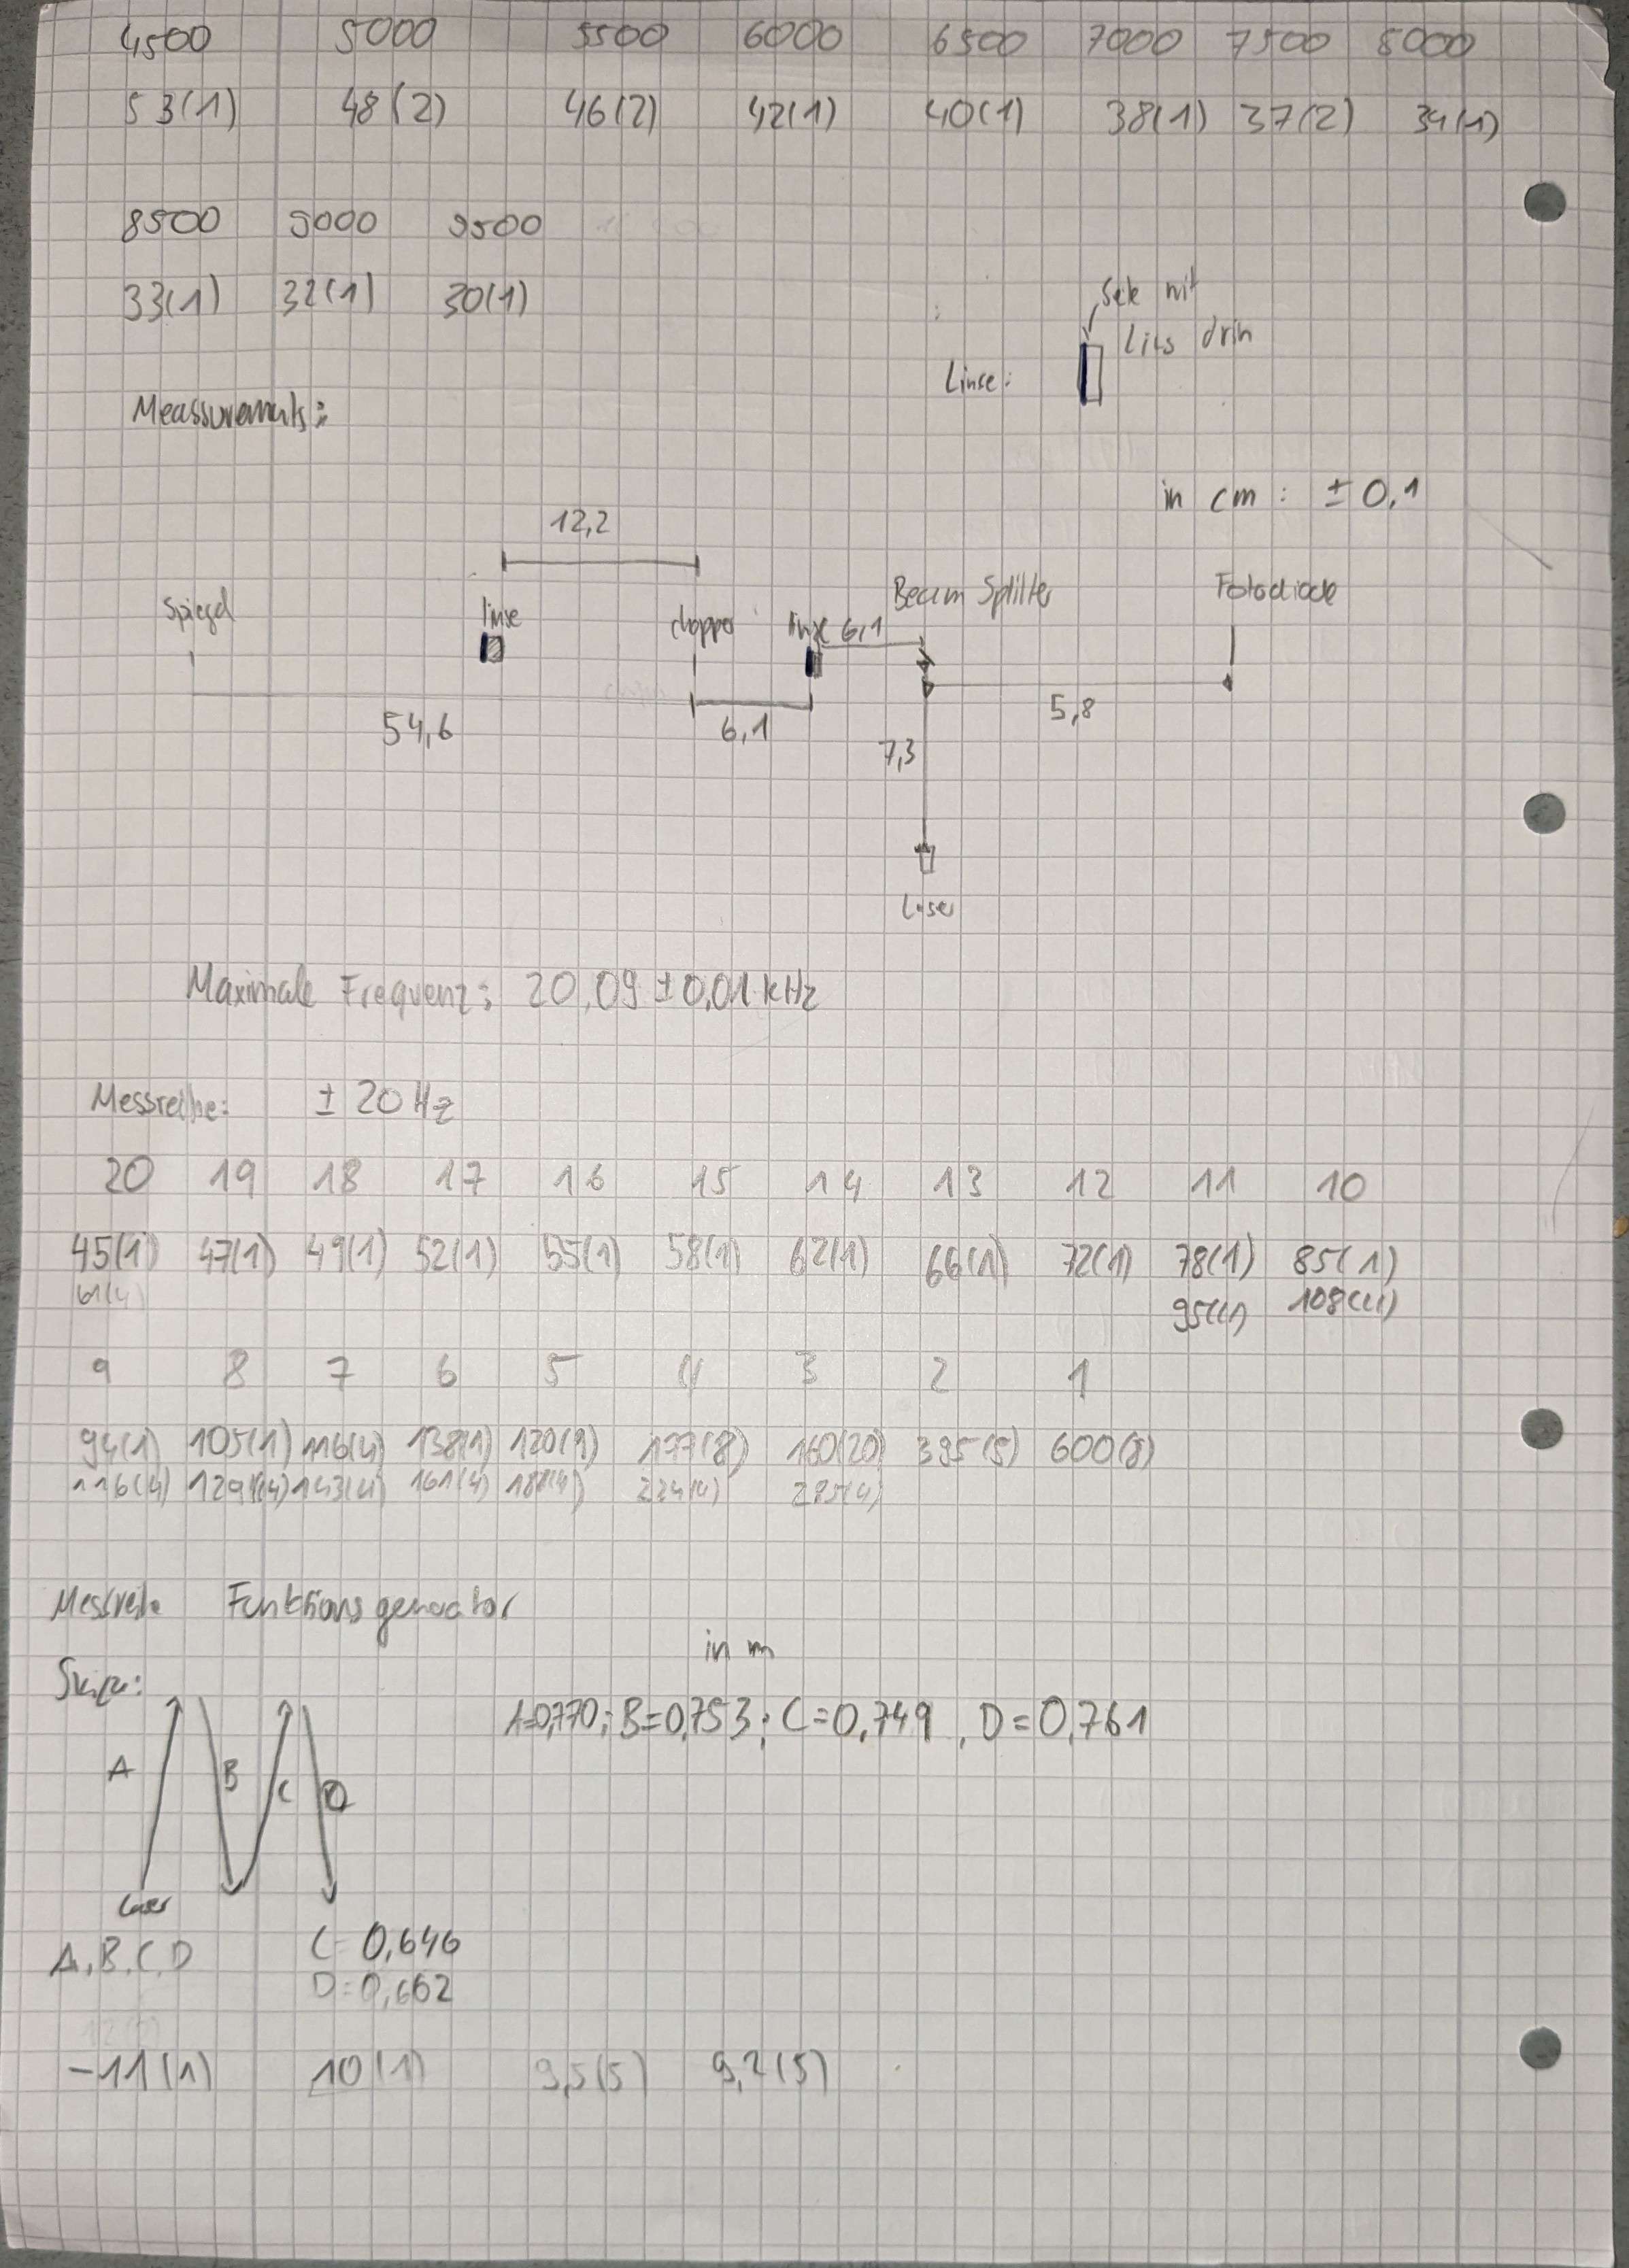 4500 5000 5500 6000 6500 7000 7500 8000
53(1) 48(2) 46(2) 42(1) 40(1) 38(1) 37(2) 34(1)
8500 9000 9500
33(1) 32(1) 30(1)
mit
drin
Linse:
Meassurements:
in cm: ± 0,1
12,2
Spiegel linse chopper linse 6,1 Beam Splitter Fotodiode
54,6 6,1 5,8
7,3
Laser
Maximale Frequenz: 20,09 ± 0,01 kHz
Messreihe: ± 20 Hz
20 19 18 17 16 15 14 13 12 11 10
45(1) 47(1) 49(1) 52(1) 55(1) 58(1) 62(1) 66(1) 72(1) 78(1) 85(1)
61(4)
9 8 7 6 5 4 3 2 1
94(1) 105(1) 116(4) 138(1) 120(9) 177(8) 160(20) 395(5) 600(8)
116(4) 129(4) 143(4) 161(4) 224(4) 285(4)
Messreihe Funktionsgenerator
in m
Skizze:
A=0,770; B=0,753; C=0,749, D=0,761
A B C D
Laser
A, B, C, D C=0,646
D=0,662
-11(1) 10(1) 9,5(5) 9,2(5)